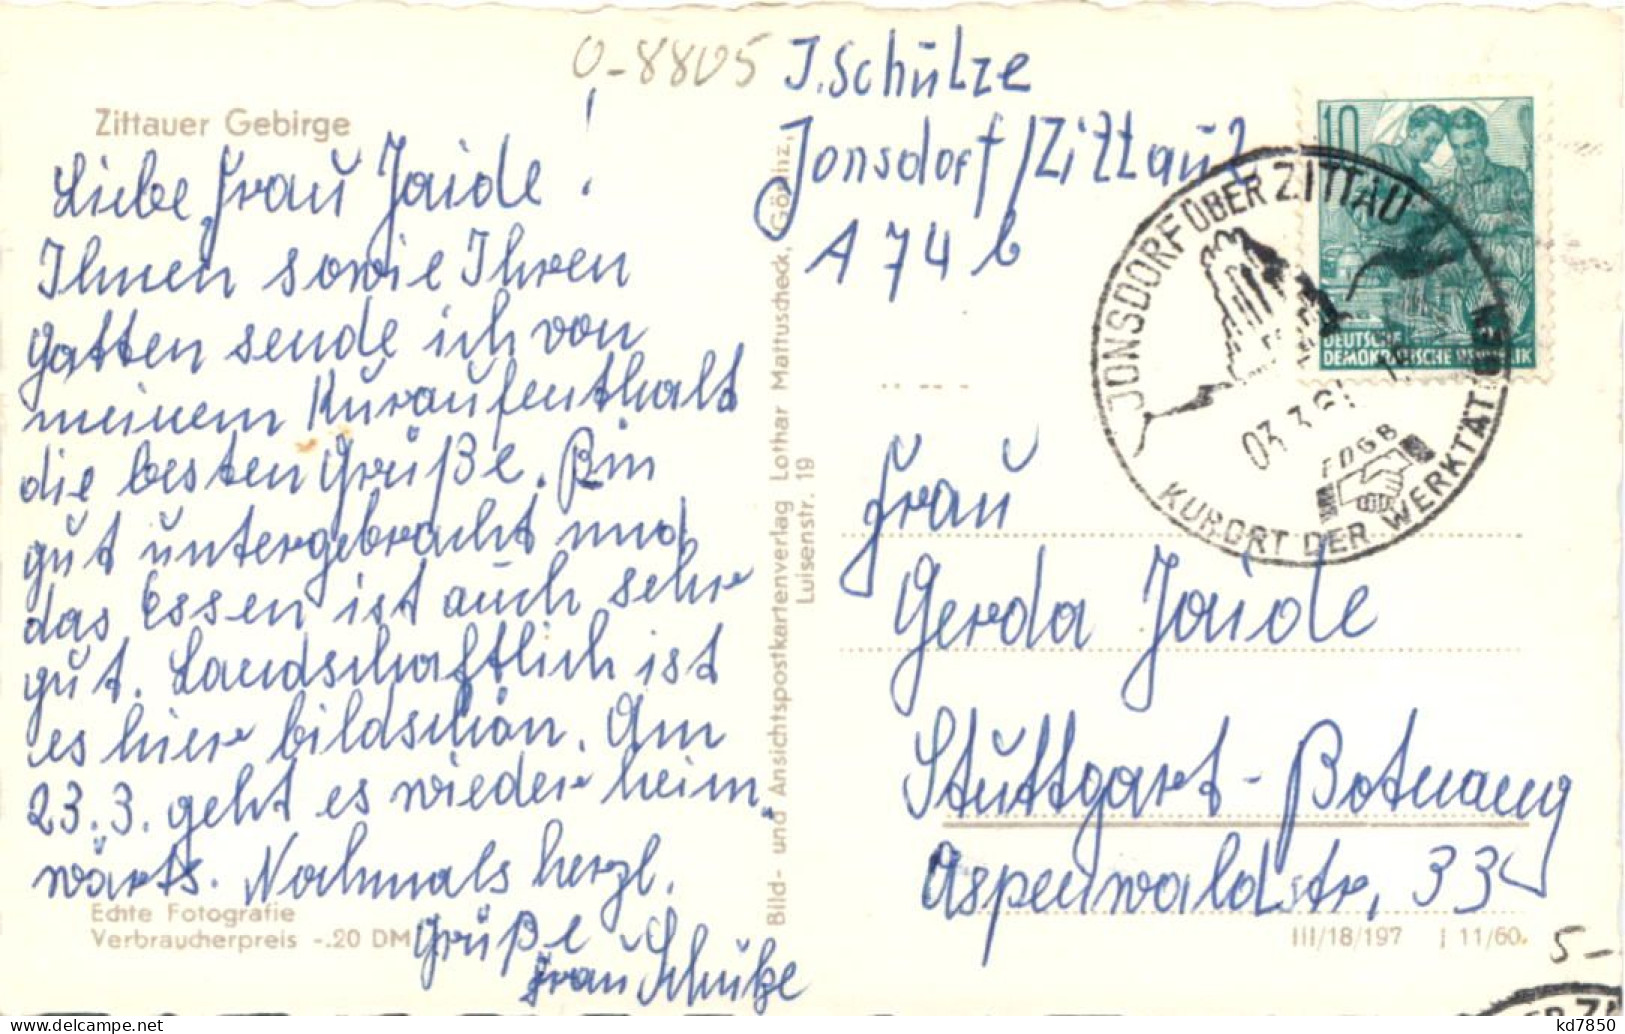 O-8805
Zittauer Gebirge
Liebe Frau Jaide!
Ihnen sowie Ihren
Gatten sende ich von
meinem Kuraufenthalt
die besten Grüße. Bin
gut untergebracht und
das Essen ist auch sehr
gut. Landschaftlich ist
es hier bildschön. Am
23.3. geht es wieder heim
wärts. Nochmals herzl.
Grüße
Frau Schulze
Echte Fotografie
Verbraucherpreis -.20 DM
Bild- und Ansichtspostkartenverlag Lothar Mattuscheck, Görlitz,
Luisenstr. 19
J. Schulze
Jonsdorf/Zittau
A 74 b
10
DEUTSCHE
DEMOKRATISCHE REPUBLIK
JONSDORF ÜBER ZITTAU
FDGB
KURORT DER WERKTÄTIGEN
Frau
Gerda Jaide
Stuttgart-Botnang
Aspenwaldstr. 33
III/18/197 J 11/60.
5-
kd7850